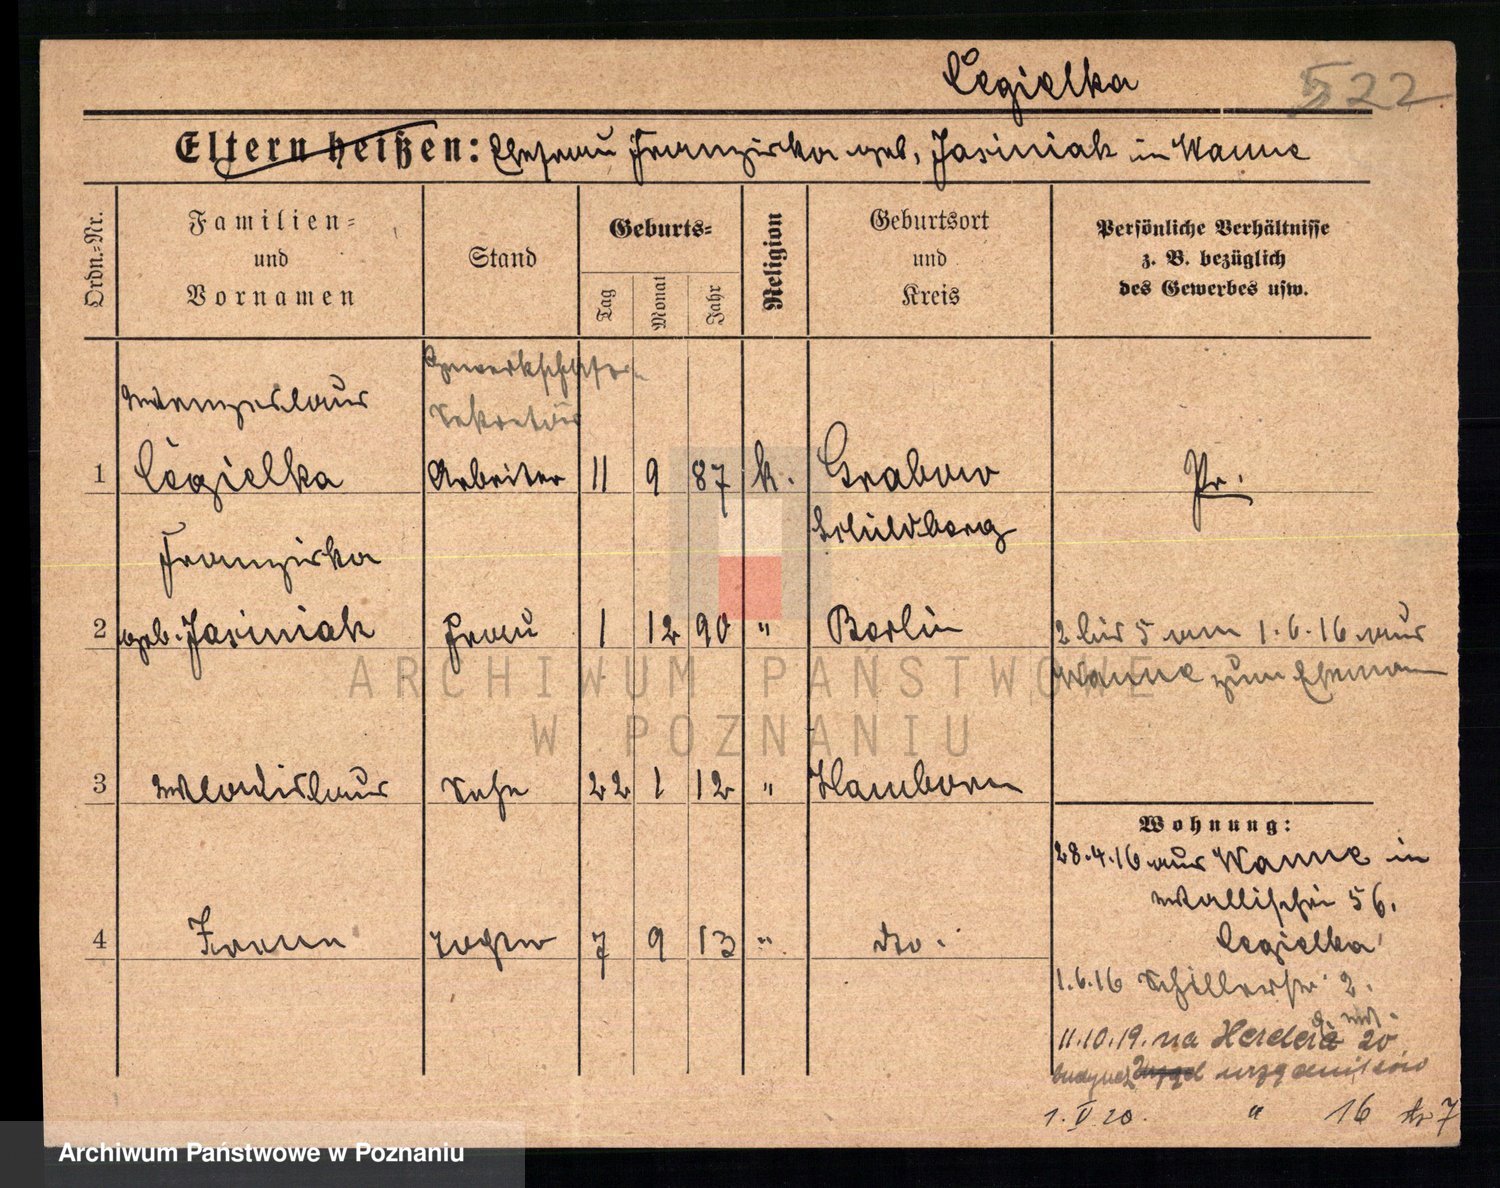 Cegielka 522
Eltern heißen: Ehefrau Franziska geb. Jasiniak in Wanne
Ordn.-Nr.
Familien-
und
Vornamen
Stand
Geburts-
Tag
Monat
Jahr
Religion
Geburtsort
und
Kreis
Persönliche Verhältnisse
z. B. bezüglich
des Gewerbes usw.
Gewerkschafts
Sekretär
Wenzeslaus
1 Cegielka Arbeiter 11 9 87 k. Grabow Pr.
Schildberg
Franziska
2 geb. Jasiniak Frau 1 12 90 " Berlin 2 bis 5 am 1.6.16 aus
Wanne zum Ehemann
ARCHIWUM PAŃSTWOWE
W POZNANIU
3 Wladislaus Sohn 22 1 12 " Hamborn
Wohnung:
28.4.16 aus Wanne in
Wallischei 56.
Cegielka
4 Irene Tochter 7 9 13 " do.
1.6.16 Schillerstr 2.
11.10.19. na Herdera 20
urzędników
1. V 20. " 16 7
Archiwum Państwowe w Poznaniu